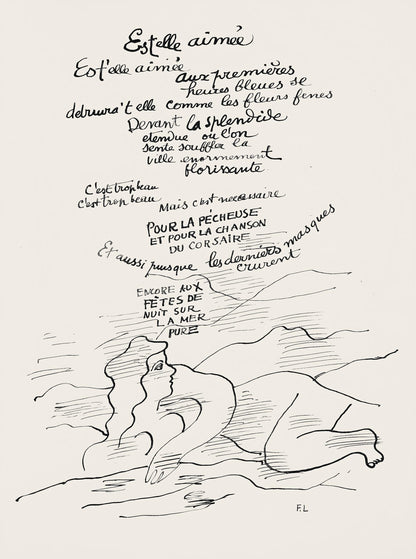 Est elle aimée
Est'elle aimée aux premières
heures bleues se
detruira't elle comme les fleurs fenes
Devant la splendide
etendue où l'on
sente souffler la
ville enormement
florissante
C'est trop beau
c'est trop beau
Mais c'est necessaire
POUR LA PÉCHEUSE
ET POUR LA CHANSON
DU CORSAIRE
Et aussi puisque les derniers masques
crurent
ENCORE AUX
FÊTES DE
NUIT SUR
LA MER
PURE
F.L